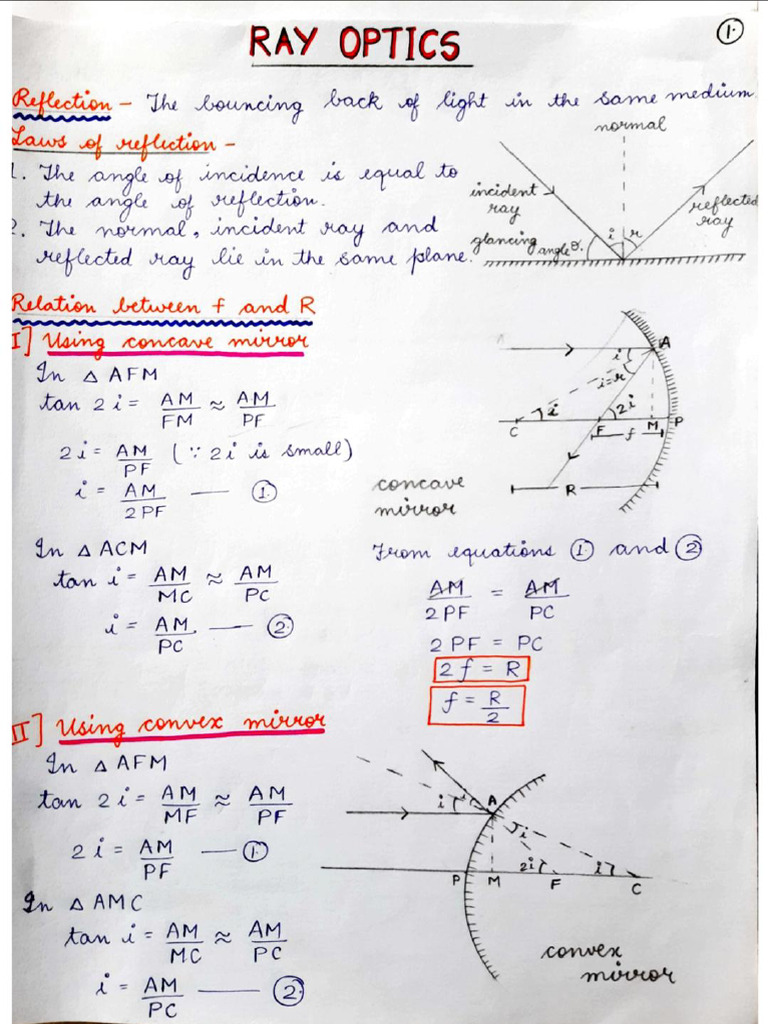 1.
RAY OPTICS
Reflection - The bouncing back of light in the same medium
Laws of reflection -
1. The angle of incidence is equal to
the angle of reflection.
2. The normal, incident ray and
reflected ray lie in the same plane.
normal
incident
ray
reflected
ray
glancing
angle θ
i r
Relation between f and R
I] Using concave mirror
In △ AFM
tan 2i = AM/FM ≈ AM/PF
2i = AM/PF (∵ 2i is small)
i = AM/2PF — 1.
In △ ACM
tan i = AM/MC ≈ AM/PC
i = AM/PC — 2.
A
i
i=r
i 2i
C F M P
f
R
concave
mirror
From equations 1. and 2
AM/2PF = AM/PC
2PF = PC
2f = R
f = R/2
II] Using convex mirror
In △ AFM
tan 2i = AM/MF ≈ AM/PF
2i = AM/PF — 1.
In △ AMC
tan i = AM/MC ≈ AM/PC
i = AM/PC — 2.
A
i
i
2i i
P M F C
convex
mirror